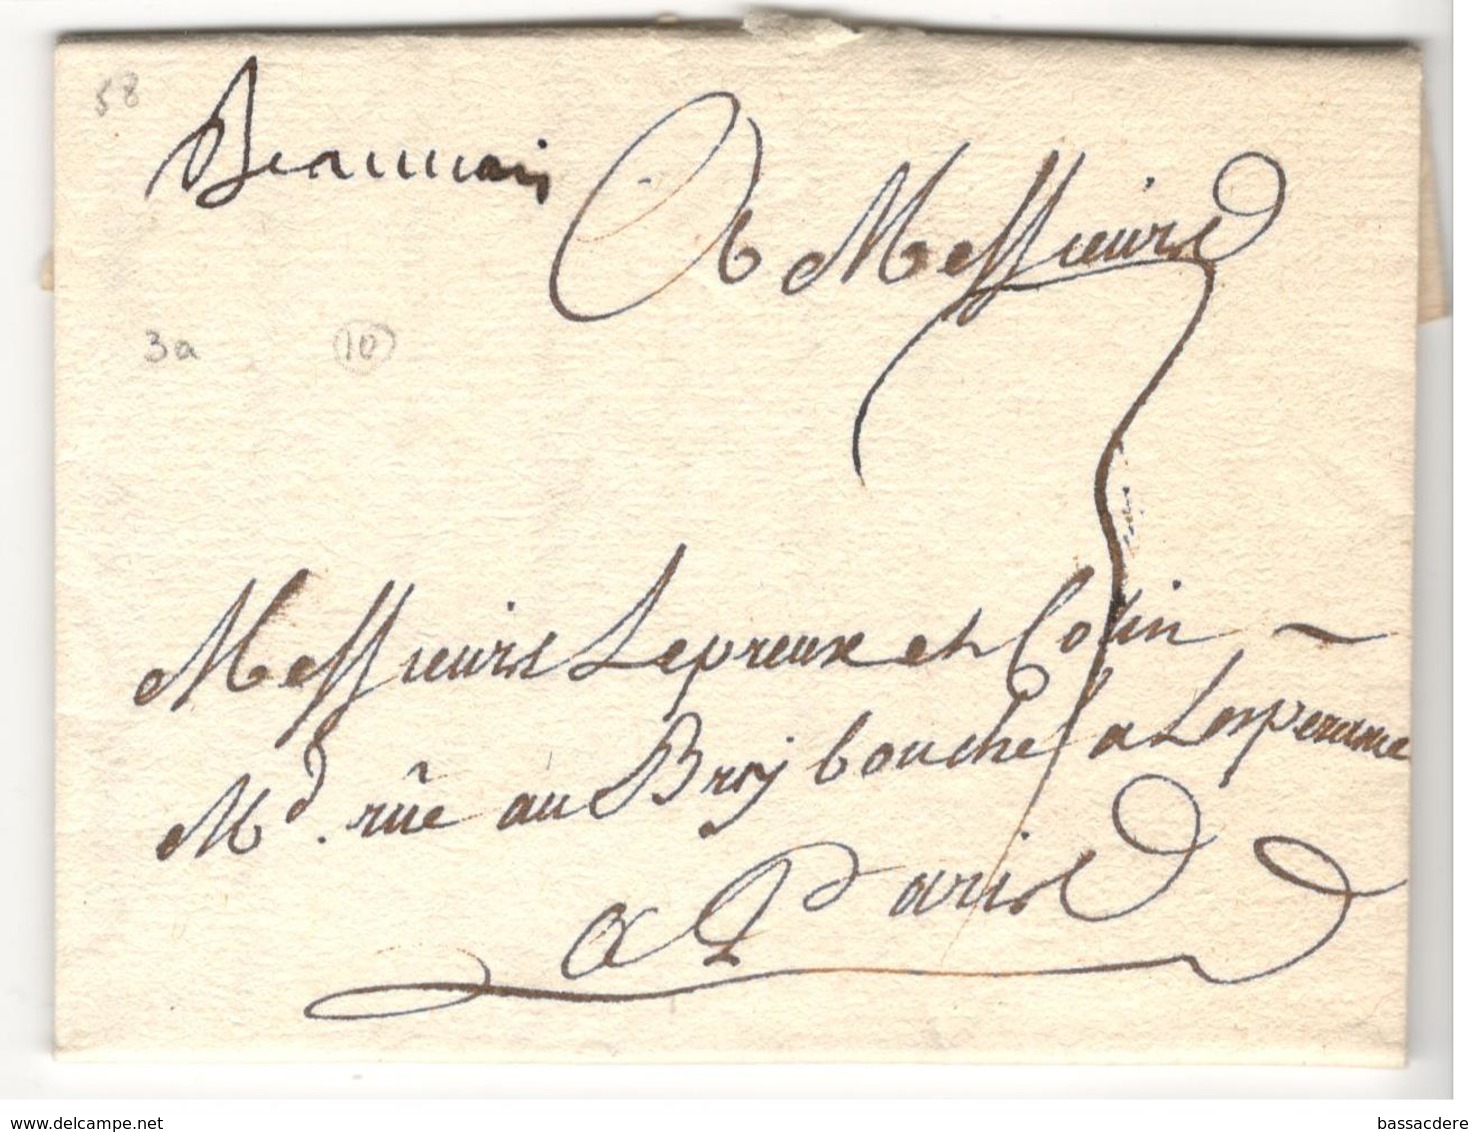 58
Beauuais
A Messieurs
3a 10
Messieurs Lepreux et Colin
Md. rûe au Bry bouche a Lesperance
a Paris
www.delcampe.net bassacdere